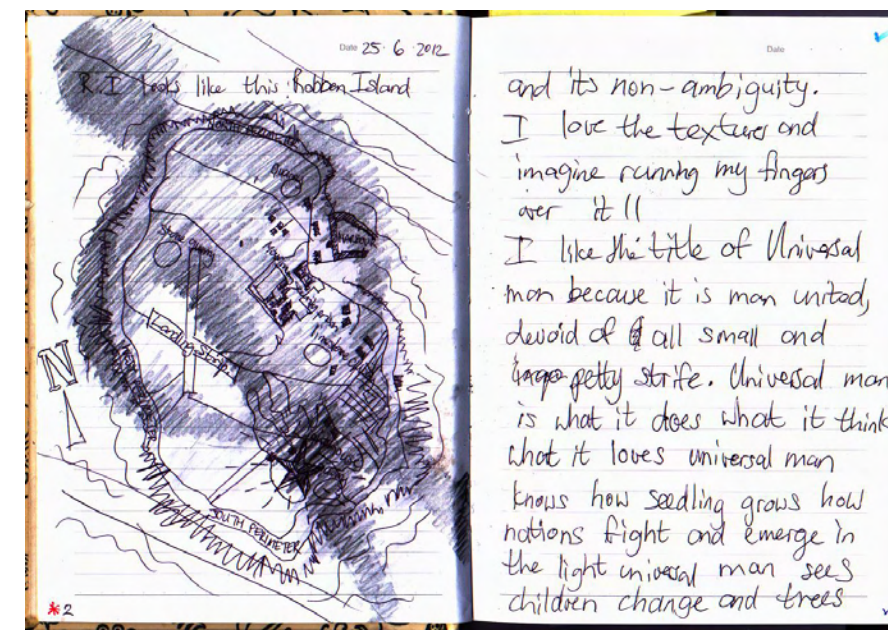 Date 25·6·2012
R.I looks like this Robben Island
NORTH PERIMETER
Quarry
HARBOUR
Stone Quarry
Landing Strip
N
SOUTH PERIMETER
*2
Date
and its non-ambiguity.
I love the textures and
imagine running my fingers
over it !!
I like the title of Universal
man because it is man united,
devoid of all small and
petty strife. Universal man
is what it does what it think
what it loves universal man
knows how seedling grows how
nations fight and emerge in
the light universal man sees
children change and trees